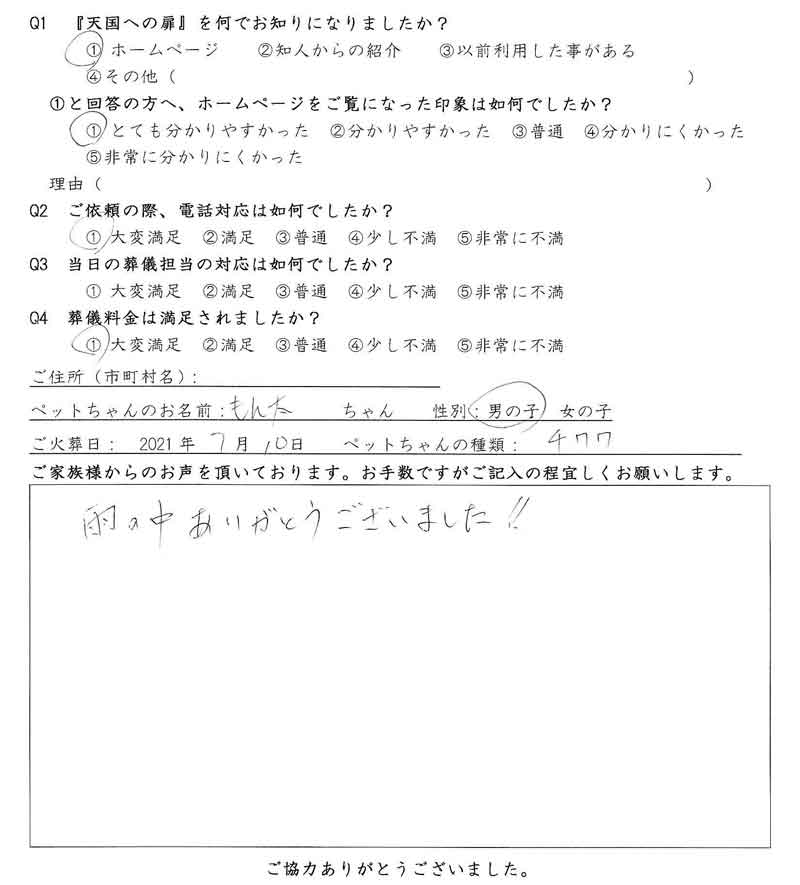 Q1 『天国への扉』を何でお知りになりましたか？
① ホームページ ②知人からの紹介 ③以前利用した事がある
④その他（ ）
①と回答の方へ、ホームページをご覧になった印象は如何でしたか？
① とても分かりやすかった ②分かりやすかった ③普通 ④分かりにくかった
⑤非常に分かりにくかった
理由（ ）
Q2 ご依頼の際、電話対応は如何でしたか？
① 大変満足 ②満足 ③普通 ④少し不満 ⑤非常に不満
Q3 当日の葬儀担当の対応は如何でしたか？
① 大変満足 ②満足 ③普通 ④少し不満 ⑤非常に不満
Q4 葬儀料金は満足されましたか？
① 大変満足 ②満足 ③普通 ④少し不満 ⑤非常に不満
ご住所（市町村名）：
ペットちゃんのお名前：もん太 ちゃん 性別：男の子 女の子
ご火葬日： 2021 年 7 月 10 日 ペットちゃんの種類： チワワ
ご家族様からのお声を頂いております。お手数ですがご記入の程宜しくお願いします。
雨の中ありがとうございました!!
ご協力ありがとうございました。